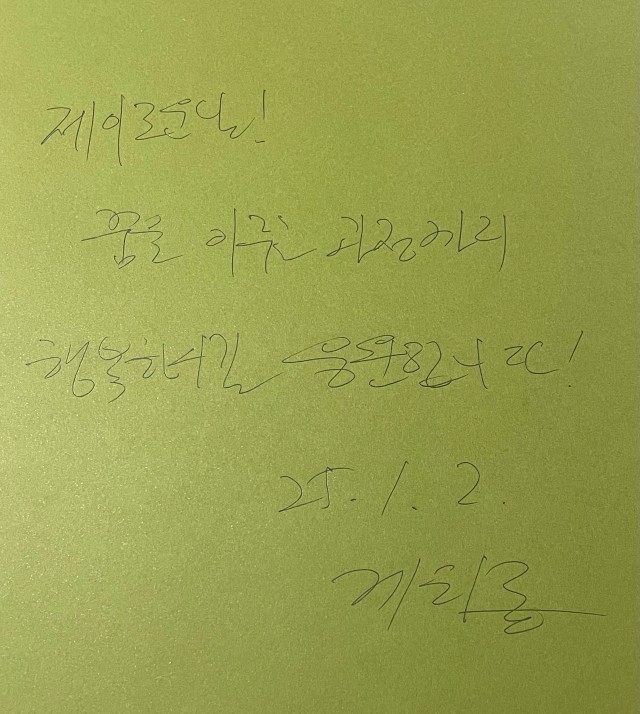 제이콥님!
꿈을 이룬 과정에서
행복하시길 응원합니다!
25. 1. 2.